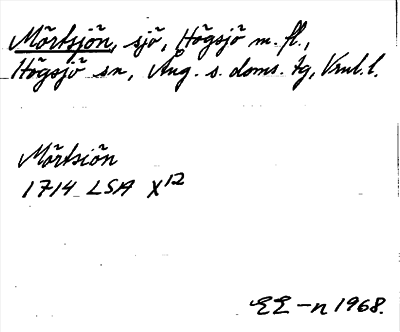 Mörtsjön, sjö, Högsjö m. fl.,
Högsjö sn, Ång. s. doms. tg, Vnl. l.
Mörtsiön
1714 LSA X12
EE-n 1968.